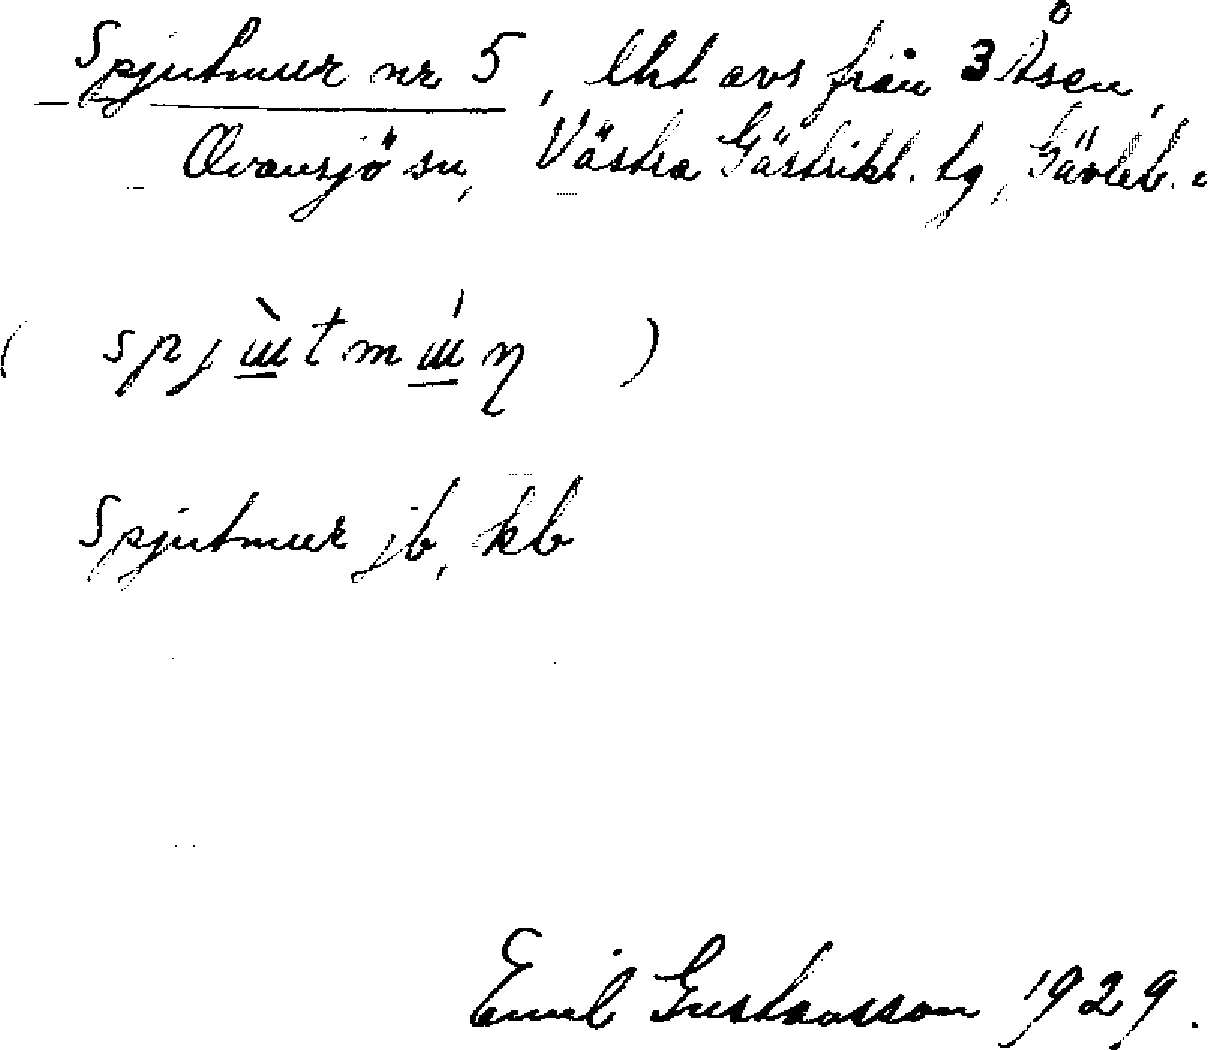 Spjutmur nr 5, lht avs från 3 Åsen,
Ovansjö sn, Västra Gästrikl. tg, Gävleb.
Spjutmur jb, kb
Emil Gustavsson 1929.